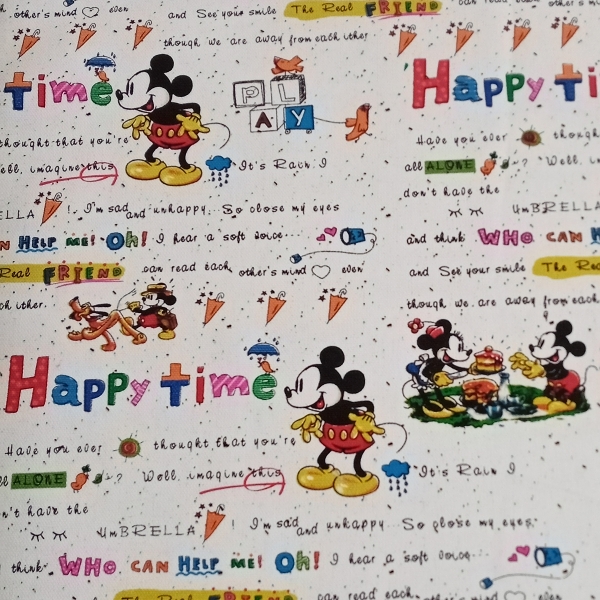 other's mind even and See your smile The Real FRIEND
though we are away from each other
time PLAY Happy Ti
thought that you're Have you ever though
ell, imagine this It's Rain I all ALONE ? Well, im
don't have the
ELLA ! I'm sad and unhappy. So close my eyes UmBRELLA
N HELP me! Oh! I hear a soft voice... and think WHO CAN H
Real FRIEND can read each other's mind even and See your smile The Rea
ch other. though we are away from each
Happy time
Have you ever thought that you're
ll ALONE ? Well, imagine this It's Rain I
n't have the
UmBRELLA ! I'm sad and unhappy. So close my eyes
think WHO CAN HELP me! Oh! I hear a soft voice...
The Real FRIEND can read each other's mind